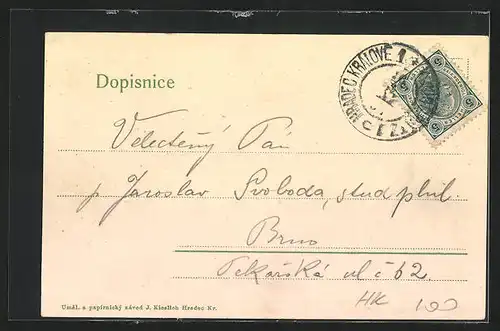 Dopisnice
HRADEC KRÁLOVÉ 1
Velectěný Pán
p Jaroslav Svoboda, stud phil
Brno
Pekařská ul č 62
HK 190
Uměl. a papírnický závod J. Kieslich Hradec Kr.